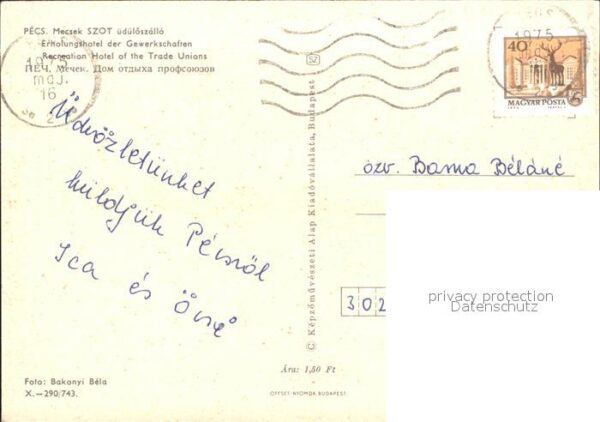 PÉCS. Mecsek SZOT üdülőszálló
Erholungshotel der Gewerkschaften
Recreation Hotel of the Trade Unions
ПЕЧ. Мечек. Дом отдыха профсоюзов
1975
máj.
16
Üdvözletünket
küldjük Pécsről
Ica és
Foto: Bakonyi Béla
X.—290/743.
© Képzőművészeti Alap Kiadóvállalata, Budapest
Ára: 1,50 Ft
OFFSET-NYOMDA BUDAPEST
1975
40
MAGYAR POSTA
özv. Barna Béláné
302
privacy protection
Datenschutz